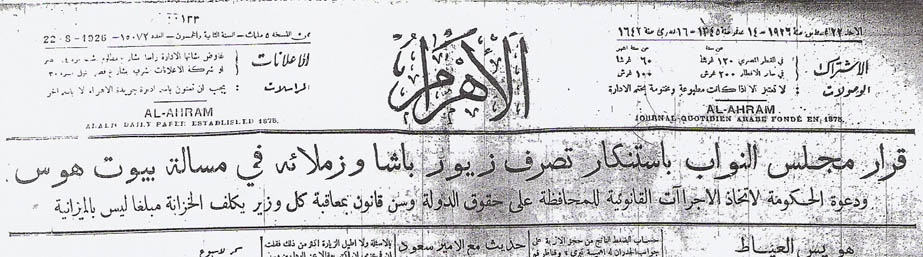 الاحد ٢٢ اغسطس سنة ١٩٢٦ — ١٤ صفر سنة ١٣٤٥ — ١٦ مسرى سنة ١٦٤٢
الاشتراك
في القطر المصري ١٢٠ قرشا
٦٠ قرشا
١٠٠ قرش
الوصولات : لا تعتبر الا اذا كانت مطبوعة ومختومة بختم الادارة
AL-AHRAM
JOURNAL QUOTIDIEN ARABE FONDÉ EN 1875.
الأهرام
ثمن النسخة ٥ مليمات — السنة الثانية والخمسون — العدد ١٥٠٧٢ — 22-8-1926
الاعلانات
المراسلات : يجب ان تعنون باسم ادارة جريدة الاهرام لا باسم احد
AL-AHRAM
ARABIC DAILY PAPER ESTABLISHED 1875.
قرار مجلس النواب باستنكار تصرف زيور باشا وزملائه في مسالة بيوت هوس
ودعوة الحكومة لاتخاذ الاجراآت القانونية للمحافظة على حقوق الدولة وسن قانون بمعاقبة كل وزير يكلف الخزانة مبلغا ليس بالميزانية
هويس العياط
حديث مع الامير سعود